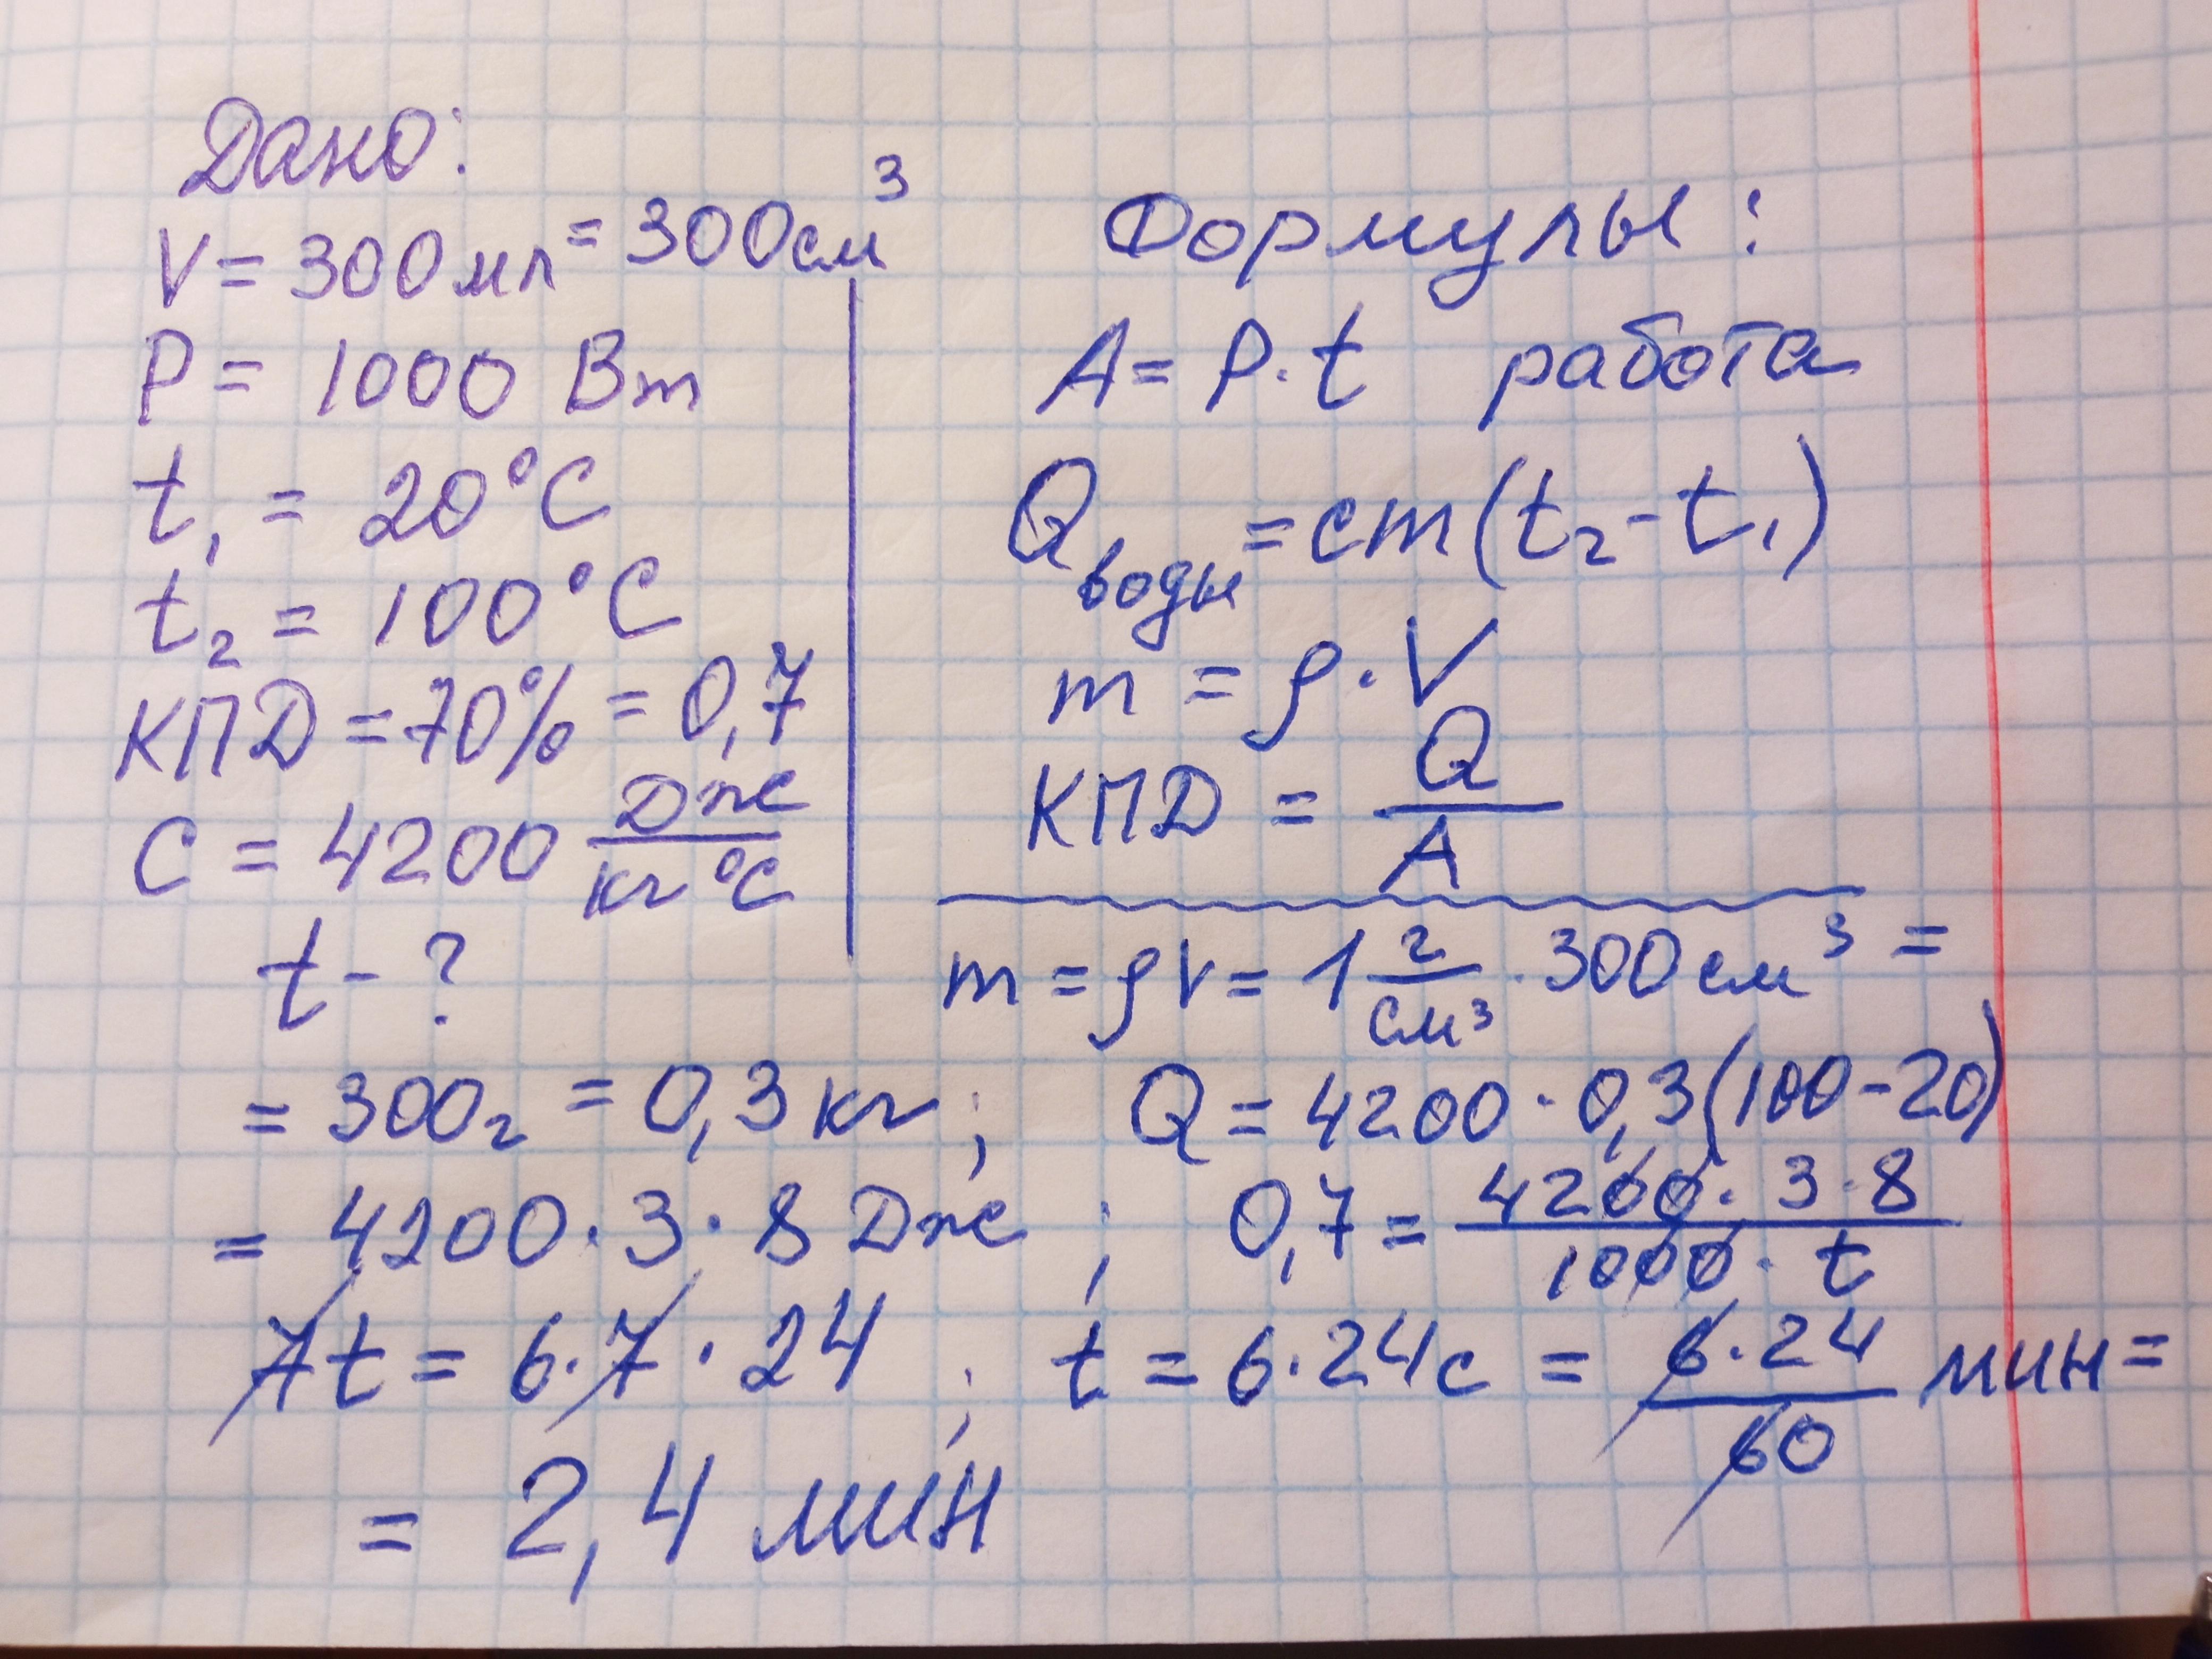 Дано:
V = 300 мл = 300 см³
P = 1000 Вт
t₁ = 20°C
t₂ = 100°C
КПД = 70% = 0,7
C = 4200 Дж/кг°C
t - ?
Формулы:
A = P·t работа
Qводы = cm(t₂ - t₁)
m = ρ·V
КПД = Q/A
m = ρV = 1 г/см³ · 300 см³ =
= 300г = 0,3 кг ; Q = 4200 · 0,3(100-20)
= 4200 · 3 · 8 Дж ; 0,7 = 4200 · 3 · 8 / 1000 · t
7t = 6·7·24 ; t = 6·24с = 6·24/60 мин =
= 2,4 мин